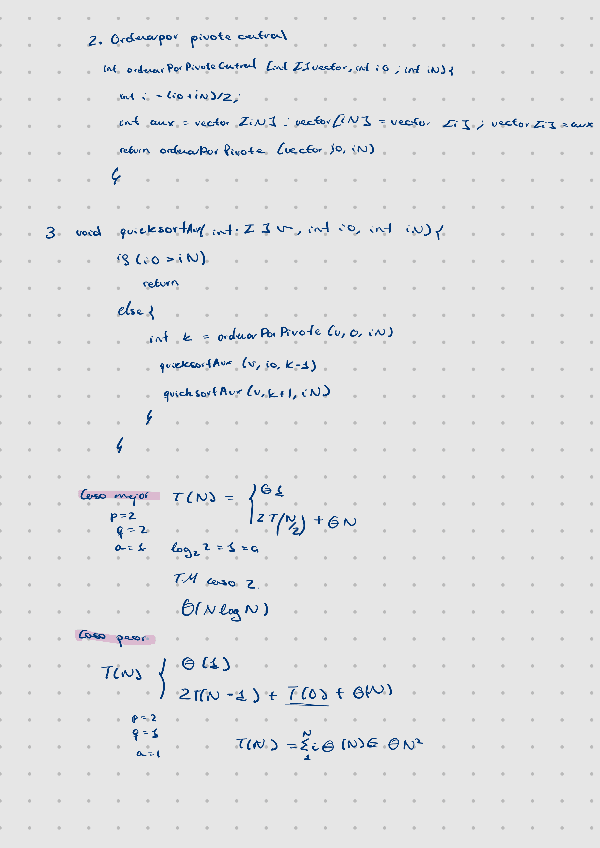 2. Ordenar por pivote central
int ordenarPorPivoteCentral (int [] vector, int i0, int iN) {
int i = (i0 + iN)/2;
int aux = vector [iN]; vector [iN] = vector [i]; vector [i] = aux
return ordenarPorPivote (vector, i0, iN)
}
3 void quicksortAux( int [] v, int i0, int iN) {
if (i0 > iN)
return
else {
int k = ordenarPorPivote (v, 0, iN)
quicksortAux (v, i0, k-1)
quicksortAux (v, k+1, iN)
}
}
Caso mejor T(N) = { Θ 1
p=2 2T(N/2) + Θ N
q=2
a=1 log₂ 2 = 1 = a
TM caso 2
Θ(N log N)
Caso peor
T(N) { Θ (1)
2T(N-1) + T(0) + Θ(N)
p=2
q=1 T(N) = Σ₁ᴺ i Θ (N) ∈ Θ N²
a=1